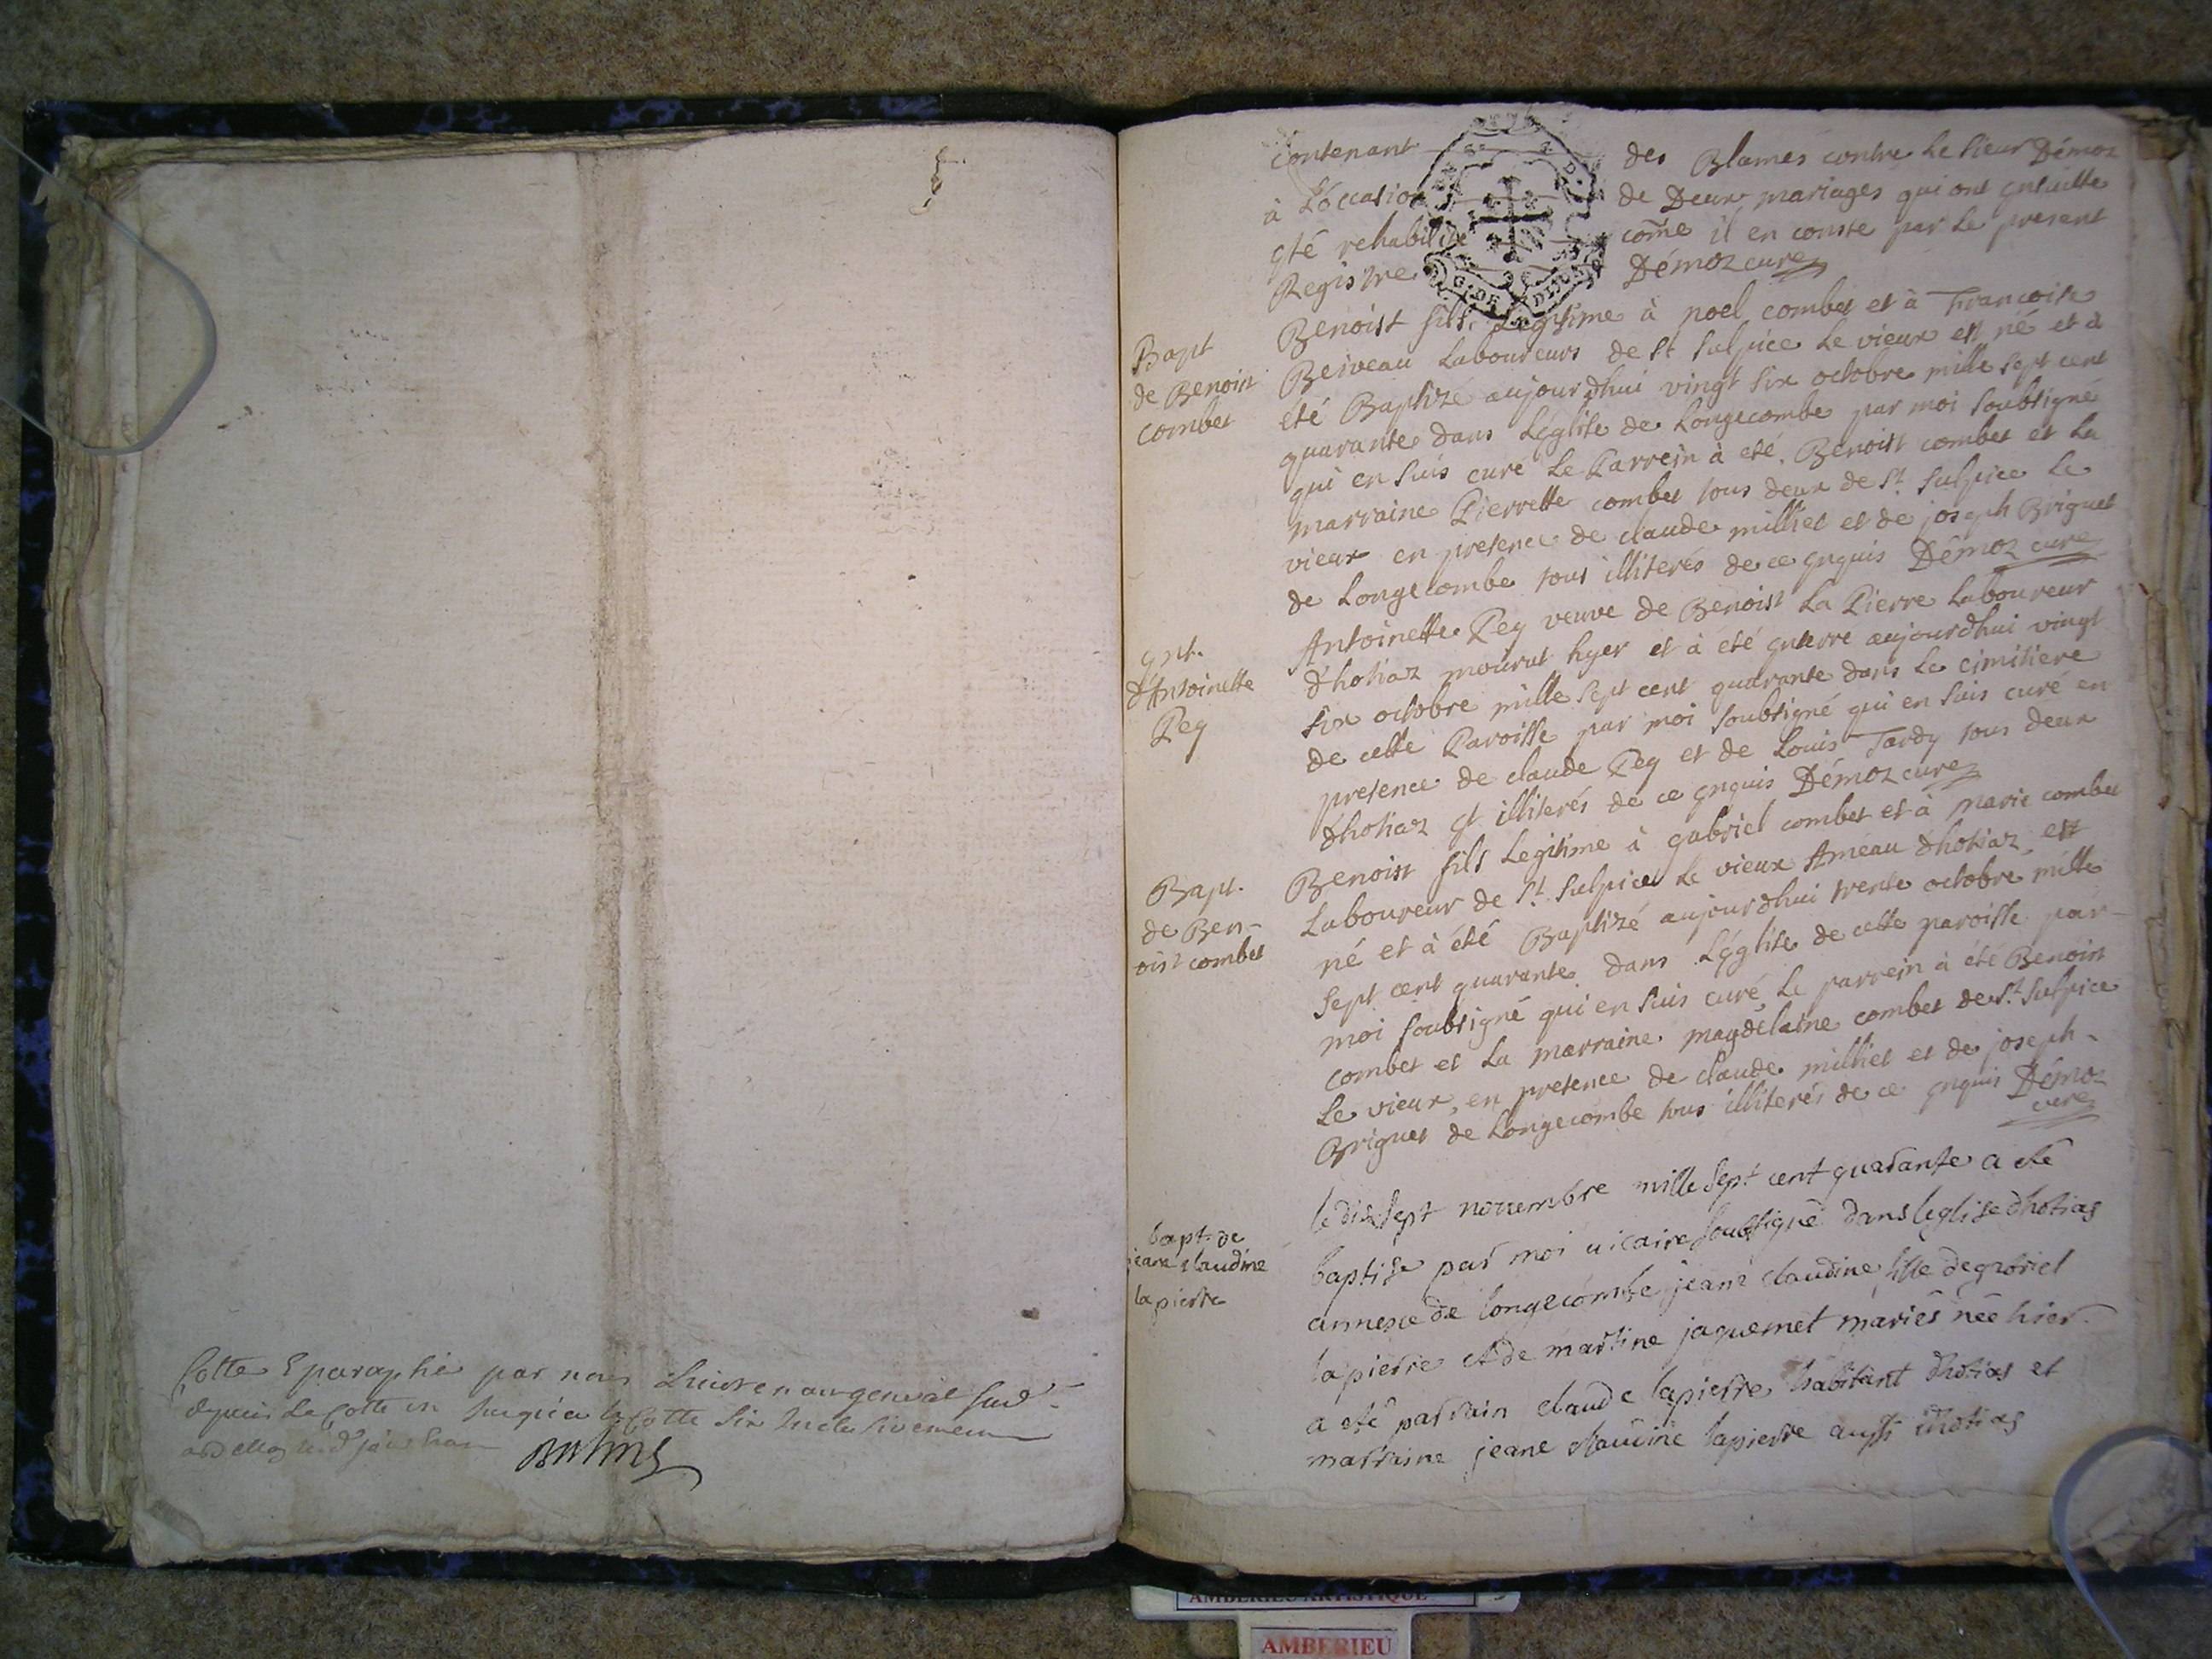 Cotte & paraphé par nous Lieutenant general sus.
depuis la Cotte un jusqu'a la Cotte six Inclusivement
contenant des Blames contre le sieur Démoz
à L'óccasion de Deux mariages qui ont ensuitte
été rehabilité cõme il en conste par le present
Registre Démoz curé
Bapt
de Benoist
combet
Benoist fils Legitime à noel combet et à Francoise
Beiveau Laboureurs de St Sulpice Le vieux est né et à
été Baptizé aujourdhui vingt six octobre mille sept cent
quarante dans Léglise de Longecombe par moi soubsigné
qui en suis curé Le Parrein à eté Benoist combet et La
marraine Pierrette combet tous deux de St Sulpice Le
vieux en presence de claude milliet et de joseph Briguet
de Longecombe tous illiterés de ce enquis Démoz curé
ent.
d'Antoinette
Pey
Antoinette Pey veuve de Benoist La Pierre Laboureur
d'hotiaz mourut hyer et à eté enterré aujourdhui vingt
six octobre mille sept cent quarante dans Le cimitiere
de cette Paroisse par moi soubsigné qui en suis curé en
presence de claude Pey et de Louis Tardy tous deux
dhotiaz et illiterés de ce enquis Démoz curé
Bapt.
de Ben-
oist combet
Benoist fils Legitime à gabriel combet et à marie combet
Laboureur de St. Sulpice Le vieux Ameau dhotiaz, est
né et à été Baptizé aujourdhui trente octobre mille
sept cent quarante dans Léglise de cette paroisse par-
moi soubsigné qui en suis curé, Le parrein à été Benoist
combet et La marraine magdelaine combet de St. Sulpice
Le vieux, en presence de claude milliet et de joseph-
Briguet de Longecombe tous illiterés de ce enquis Démoz
curé
bapt. de
jeane claudine
lapierre
le dixsept novembre mille Sept cent quarante a eté
baptisé par moi vicaire soubsigné dans leglise dhotias
annexe de longecombe jeane claudine fille de gabriel
lapierre et de martine jaquemet mariés née hier.
a eté parrain claude lapierre habitant dhotias et
marraine jeane claudine lapierre aussi dhotias
AMBERIEU ARTISTIQUE
AMBERIEU